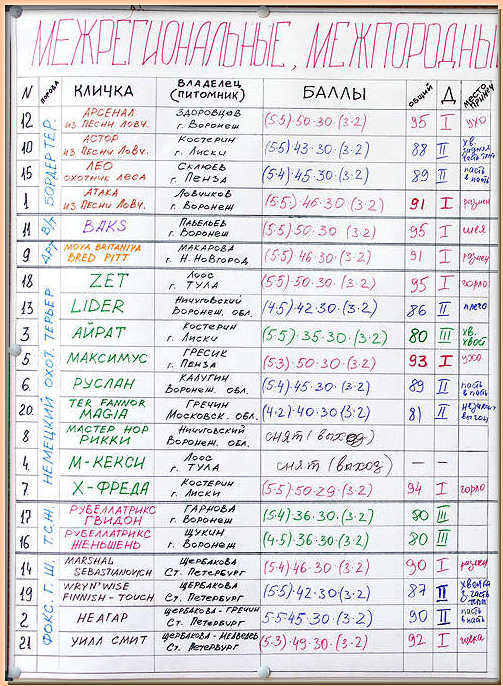 МЕЖРЕГИОНАЛЬНЫЕ, МЕЖПОРОДНЫ
N ПОРОДА КЛИЧКА ВЛАДЕЛЕЦ (ПИТОМНИК) БАЛЛЫ ОБЩИЙ Д МЕСТО
БОРДЕР ТЕР.
12 АРСЕНАЛ ИЗ ПЕСНИ ЛОВЧ. ЗДОРОВЦОВ г. ВОРОНЕЖ (5·5)·50·30·(3·2) 95 I УХО
10 АСТОР ИЗ ПЕСНИ ЛОВЧ. КОСТЕРИН г. ЛИСКИ (5·5)·43·30·(3·2) 88 II ХВ. ЗАДНЯЯ ЧАСТЬ ТЕЛА
15 ЛЕО ОХОТНИК ЛЕСА СКЛЮЕВ г. ПЕНЗА (5·4)·45·30·(3·2) 89 II ПАСТЬ В ПАСТЬ
1 АТАКА ИЗ ПЕСНИ ЛОВЧ. ЛОВЧИКОВ г. ВОРОНЕЖ (5·5)·46·30·(3·2) 91 I РАЗМЕН
11 BAKS ПАВЕЛЬЕВ г. ВОРОНЕЖ (5·5)·50·30·(3·2) 95 I ШЕЯ
9 MOYA BRITANIYA BRED PITT МАКАРОВА г. Н.НОВГОРОД (5·5)·46·30·(3·2) 91 I РАЗМЕН
НЕМЕЦКИЙ ОХОТ. ТЕРЬЕР
18 ZET ЛООС г. ТУЛА (5·5)·50·30·(3·2) 95 I ГОРЛО
13 LIDER НИЧУГОВСКИЙ ВОРОНЕЖ. ОБЛ. (4·5)·42·30·(3·2) 86 II ПЛЕЧО
3 АЙРАТ КОСТЕРИН г. ЛИСКИ (5·5)·35·30·(3·2) 80 III ХВ. ХВОСТ
5 МАКСИМУС ГРЕСИК г. ПЕНЗА (5·3)·50·30·(3·2) 93 I УХО
6 РУСЛАН КАЛУГИН ВОРОНЕЖ. ОБЛ. (5·4)·45·30·(3·2) 89 II ПАСТЬ В ПАСТЬ
20 TER FANNOR MAGIA ГРЕЧИН МОСКОВСК. ОБЛ. (4·2)·40·30·(3·2) 81 II
8 МАСТЕР НОР РИККИ НИЧУГОВСКИЙ ВОРОНЕЖ. ОБЛ. СНЯТ (ВЫХОД)
4 М-КЕКСИ ЛООС г. ТУЛА СНЯТ (ВЫХОД) — —
7 Х-ФРЕДА КОСТЕРИН г. ЛИСКИ (5·5)·50·29·(3·2) 94 I ГОРЛО
Т.С.Ж.
17 РУБЕЛЛАТРИКС ГВИДОН ГАРНОВА г. ВОРОНЕЖ (5·4)·36·30·(3·2) 80 III
16 РУБЕЛЛАТРИКС ЖЕНЬШЕНЬ ЩУКИН г. ВОРОНЕЖ (4·5)·36·30·(3·2) 80 III
ФОКС. Г. Ш.
14 MARSHAL SEBASTIANOVICH ЩЕРБАКОВА СТ. ПЕТЕРБУРГ (5·4)·46·30·(3·2) 90 I РАЗМЕН
19 WRYN'WISE FINNISH-TOUCH ЩЕРБАКОВА СТ. ПЕТЕРБУРГ (5·5)·42·30·(3·2) 87 II
2 НЕАГАР ЩЕРБАКОВА-ГРЕЧИН СТ. ПЕТЕРБУРГ 5·5·45·30·(3·2) 90 II ПАСТЬ В ПАСТЬ
21 УИЛЛ СМИТ ЩЕРБАКОВА-МЕДВЕДЕВ СТ. ПЕТЕРБУРГ (5·3)·49·30·(3·2) 92 I ЩЕКА